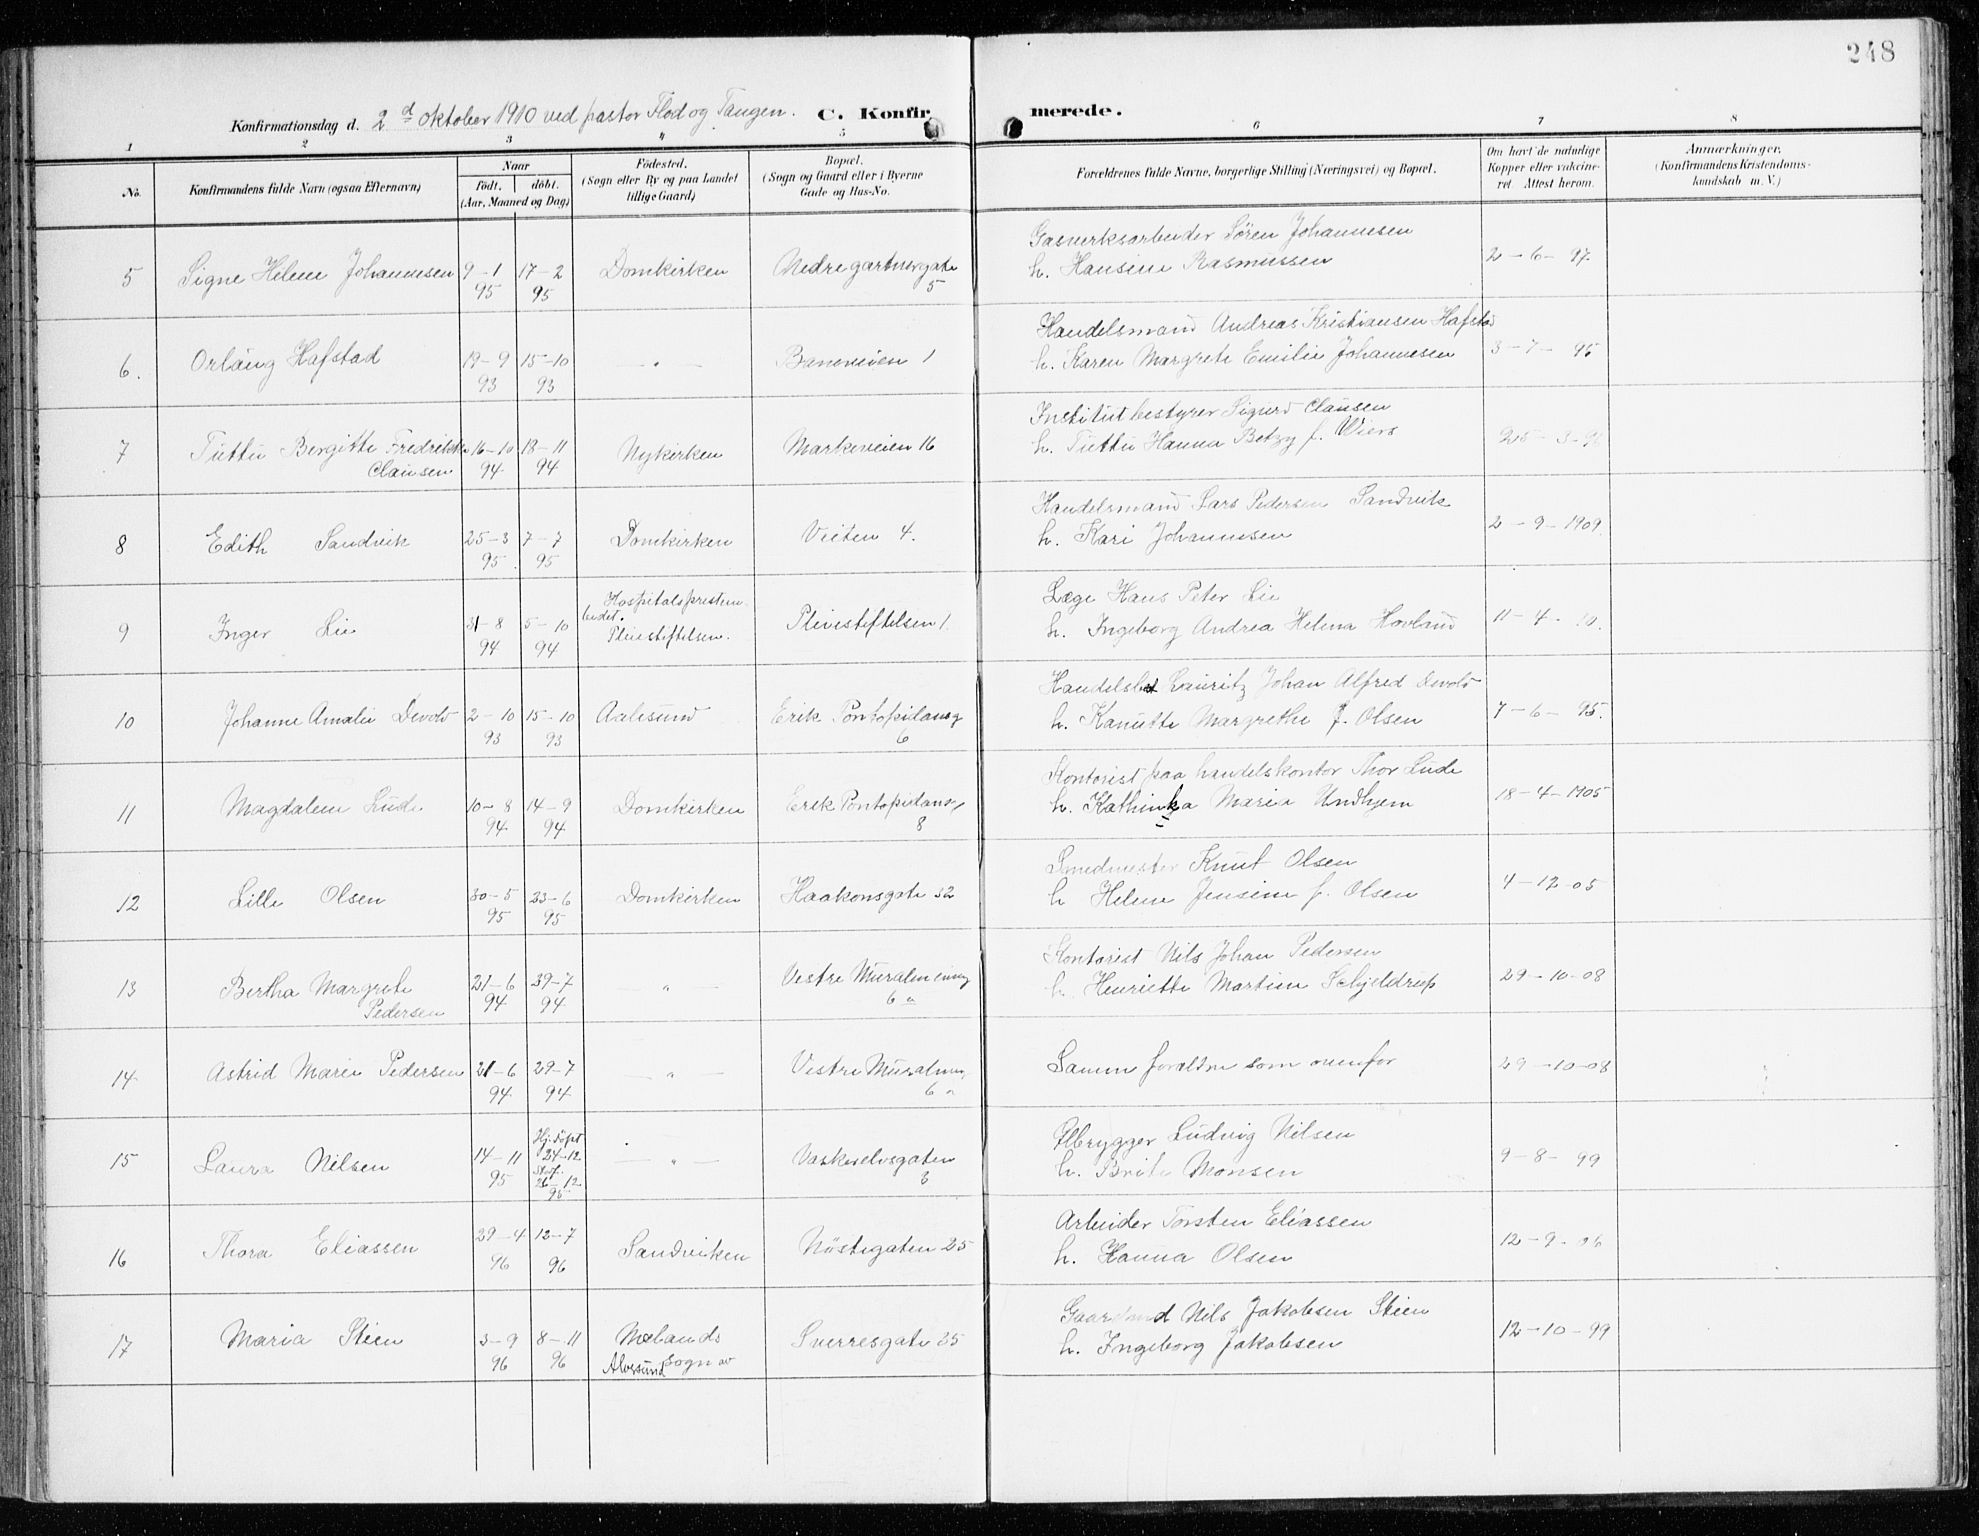 248
Konfirmationsdag d. 2d oktober 1910 ved pastor Flod og Tangen. C. Konfirmerede.
1 2 3 4 5 6 7 8
No. Konfirmandens fulde Navn (ogsaa Efternavn) Naar født, døbt. (Aar, Maaned og Dag) Fødested. (Sogn eller By og paa Landet tillige Gaard) Bopæl. (Sogn og Gaard eller i Byerne Gade og Hus-No. Forældrenes fulde Navne, borgerlige Stilling (Næringsvei) og Bopæl. Om havt de naturlige Kopper eller vakcineret. Attest herom. Anmærkninger. (Konfirmandens Kristendomskundskab m. V.)
5 Signe Helene Johannesen 9-1 95 17-2 95 Domkirken Nedre gartnergate 5 Gasverksarbeider Søren Johannesen h. Hansine Rasmussen 2-6-97.
6. Orlaug Hafstad 19-9 93 15-10 93 — " — Baneveien 1 Handelsmand Andreas Kristiansen Hafstad h. Karen Margrete Emilie Johannesen 3-7-95
7 Tuttu Bergitte Fredrikke Clausen 16-10 94 18-11 94 Nykirken Markeveien 16 Institutbestyrer Sigurd Clausen h. Tuttu Hanna Betzy f. Wiers 25-3-9
8 Edith Sandvik 25-3 95. 7-7 95 Domkirken Veiten 4. Handelsmand Lars Pedersen Sandvik h. Kari Johannesen 2-9-1909.
9 Inger Lie 31-8 94 5-10 94 Hospitalsprestembedet. Pleiestiftelsen. Pleiestiftelsen 1. Læge Hans Peter Lie h. Ingeborg Andrea Helena Hovland 11-4-
10 Johanne Amalie Devold 2-10 93 15-10 93 Aalesund Erik Pontopidansg 6 Lauritz Johan Alfred Devold h. Kanutte Margrethe f. Olsen 7-6-95.
11 Magdalene Lude 10-8 94 14-9 94 Domkirken Erik Pontopidans 8 Kontorist paa handelskontor Thor Lude h. Kathinka Maria Undhjem 18-4-1905
12 Lille Olsen 30-5 95 23-6 95 Domkirken Haakonsgate 32 Smedmester Knut Olsen h Helene Jensine f. Olsen 4-12-05
13 Bertha Margrete Pedersen 21-6 94 29-7 94 — " — Vestre Muralmening 6 a Kontorist Nils Johan Pedersen h. Henriette Martine Schjeldrup 29-10-08
14 Astrid Marie Pedersen 21-6 94 29-7 94 — " — Vestre Muralmen. 6 a Samme forældre som ovenfor 29-10-08
15 Laura Nilsen 14-11 95 Hj. døpt 24-12 Stadf. 26-12 95 — " — Vaskerelvsgaten Ølbrygger Ludvig Nilsen h. Brite Monsen 9-8-99
16 Thora Eliassen 29-4 96 12-7 96 Sandviken Nøstegaten 25 Arbeider Torsten Eliassen h. Hanna Olsen 12-9-06
17 Maria Steen 3-9 96 8-11 96 Mælands Sogn av Alversund Sverresgate 25 Gaardmand Nils Jakobsen Steen h. Ingeborg Jakobsen 12-10-99